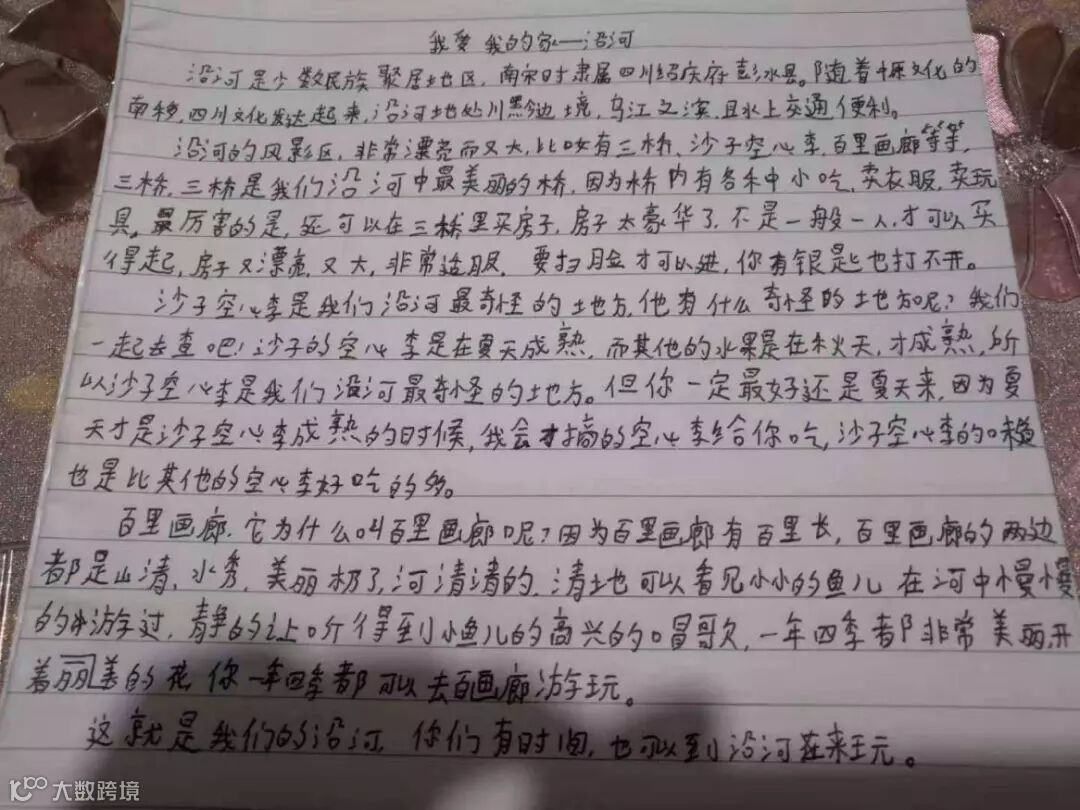 我爱 我的家—沿河
沿河是少数民族聚居地区，南宋时隶属四川绍庆府彭水县。随着中原文化的
南移，四川文化发达起来，沿河地处川黔边境，乌江之滨，且水上交通便利。
沿河的风景区，非常漂亮而又大，比如有三桥、沙子空心李，百里画廊等等，
三桥，三桥是我们沿河中最美丽的桥，因为桥内有各种小吃、卖衣服，卖玩
具。最厉害的是，还可以在三桥里买房子，房子太豪华了，不是一般一人，才可以买
得起，房子又漂亮，又大，非常适服，要扫脸才可以进，你有银匙也打不开。
沙子空心李是我们沿河最奇怪的地方，他有什么奇怪的地方呢？我们
一起去查吧！沙子的空心李是在夏天成熟，而其他的水果是在秋天，才成熟，所
以沙子空心李是我们沿河最奇怪的地方。但你一定最好还是夏天来，因为夏
天才是沙子空心李成熟的时候，我会才摘的空心李给你吃，沙子空心李的味道
也是比其他的空心李好吃的多。
百里画廊，它为什么叫百里画廊呢？因为百里画廊有百里长，百里画廊的两边
都是山清、水秀，美丽极了，河清清的，清地可以看见小小的鱼儿，在河中慢慢
的游过，静的让听得到小鱼儿的高兴的唱歌，一年四季都非常美丽，开
着美的花，你一年四季都可以去百画廊游玩。
这就是我们的沿河，你们有时间，也可以到沿河来玩。
大数跨境